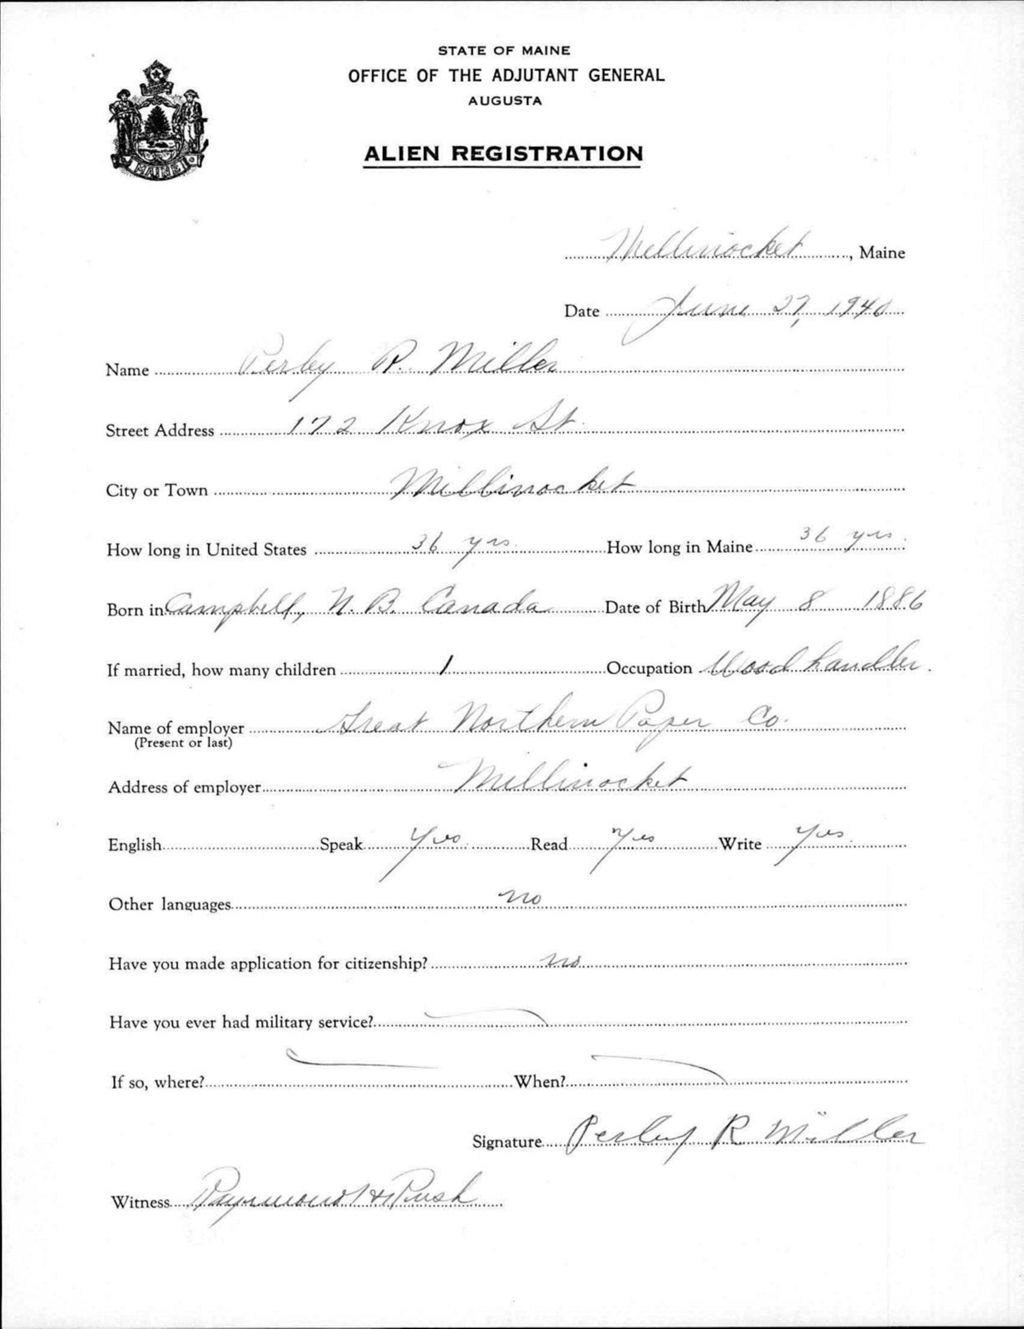 STATE OF MAINE
OFFICE OF THE ADJUTANT GENERAL
AUGUSTA
ALIEN REGISTRATION
MAINE
Millinocket, Maine
Date June 27, 1940
Name Perley R. Miller
Street Address 172 Knox St.
City or Town Millinocket
How long in United States 36 yrs. How long in Maine 36 yrs.
Born in Campbell, N. B. Canada Date of Birth May 8 1886
If married, how many children 1 Occupation Wood handler.
Name of employer Great Northern Paper Co.
(Present or last)
Address of employer Millinocket
English Speak Yes Read Yes Write Yes
Other languages no
Have you made application for citizenship? no
Have you ever had military service?
If so, where? When?
Signature Perley R Miller
Witness Raymond H Rush